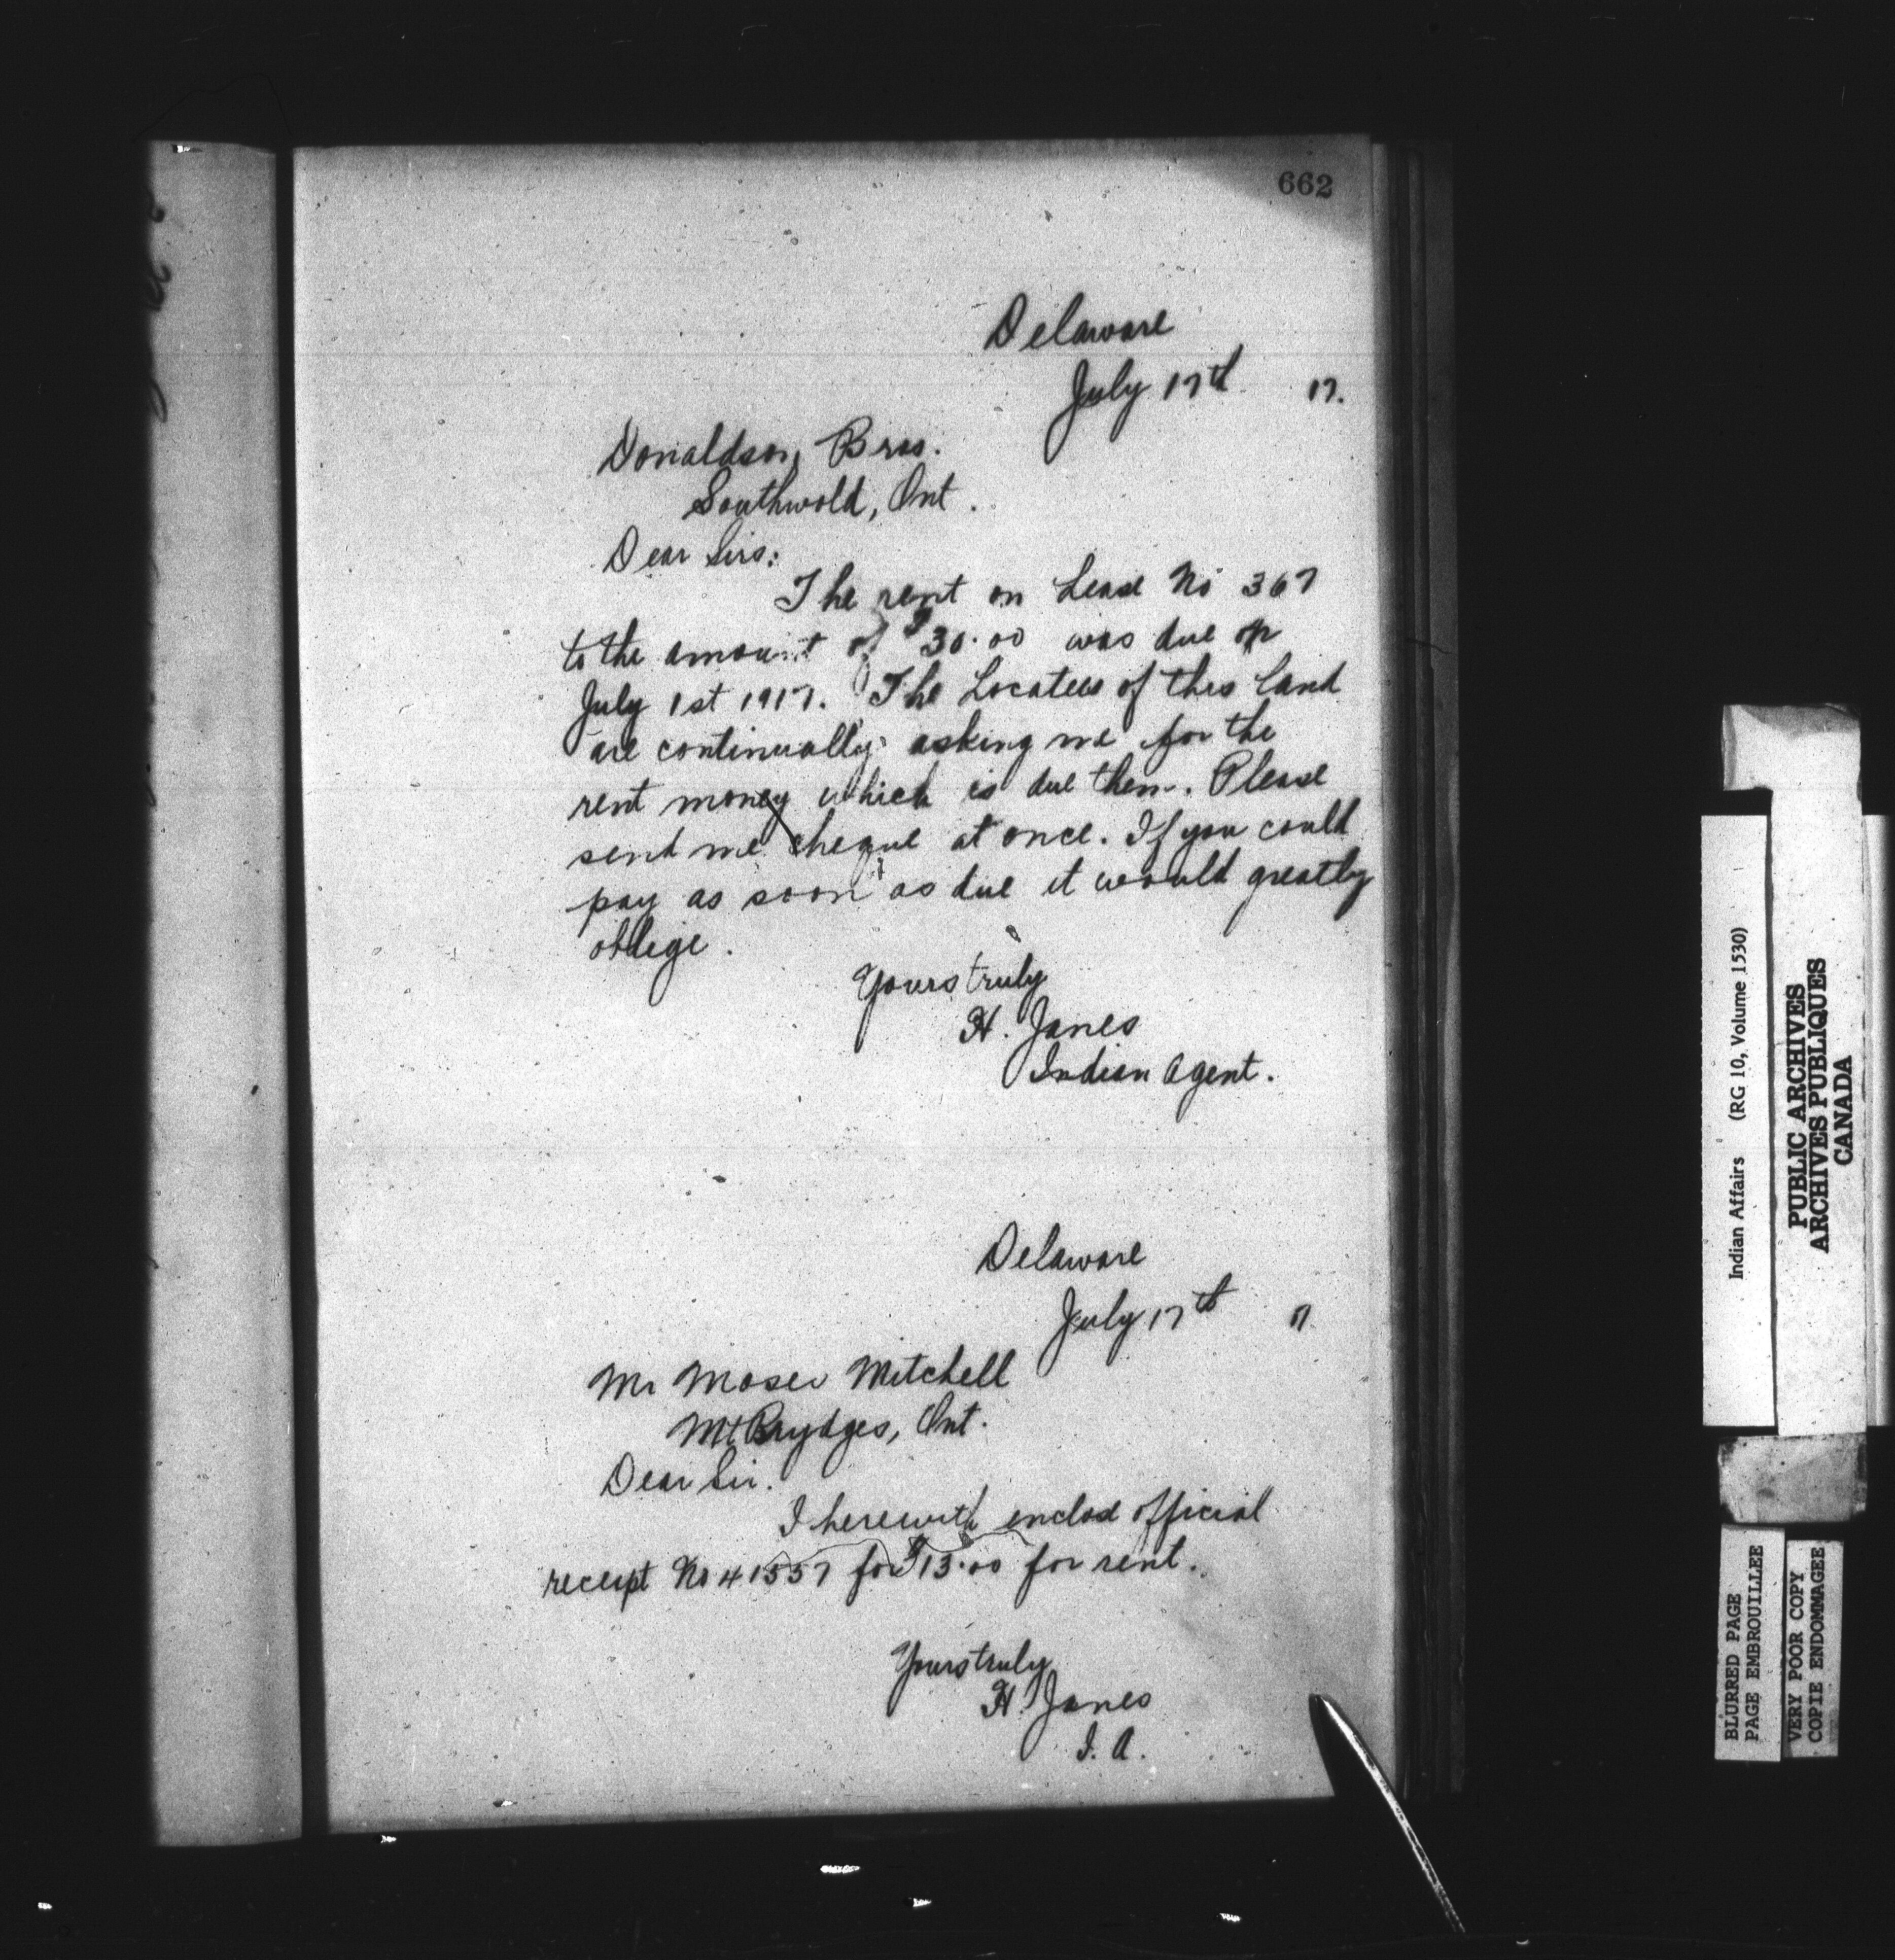 662
Delaware
July 17th 17.
Donaldson Bros.
Southwold, Ont.
Dear Sirs:
The rent on Lease No 367
to the amount of $30.00 was due on
July 1st 1917. The Locatees of this land
are continually asking me for the
rent money which is due them. Please
send me cheque at once. If you could
pay as soon as due it would greatly
oblige.
Yours truly
H. Janes
Indian Agent.
Delaware
July 17th 17.
Mr Moses Mitchell
Mt Brydges, Ont.
Dear Sir.
I herewith enclose official
receipt No 41557 for $13.00 for rent.
Yours truly
H. Janes
I. A.
Indian Affairs (RG 10, Volume 1530)
PUBLIC ARCHIVES
ARCHIVES PUBLIQUES
CANADA
BLURRED PAGE
PAGE EMBROUILLEE
VERY POOR COPY
COPIE ENDOMMAGEE